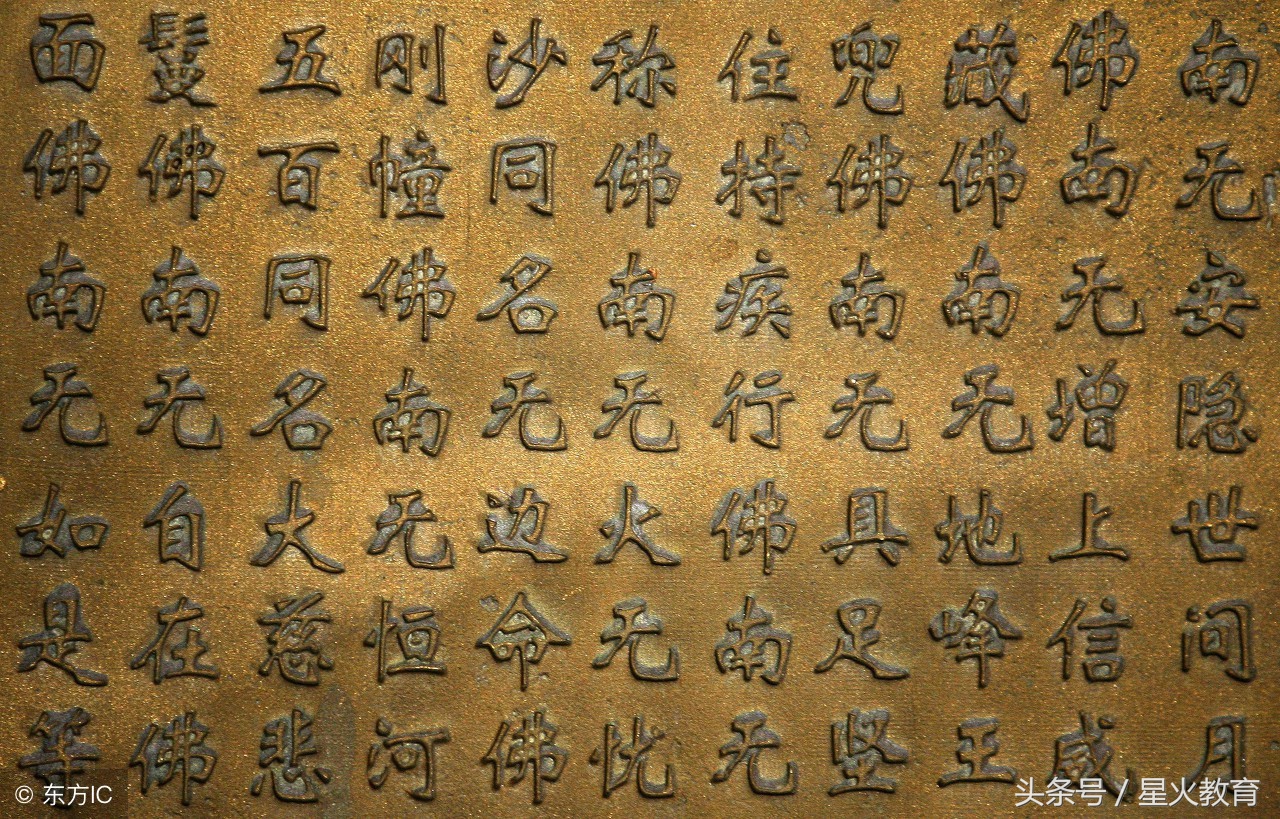 南无安隐世间月
佛南无增上信威
藏佛南无地峰王
兜佛南无具足坚
住持疾行佛南无
称佛南无火无
沙同名无边命佛
刚幢佛南无恒河
五百同名大慈悲
鬘佛南无自在佛
面佛南无如是等
© 东方IC
头条号 / 星火教育